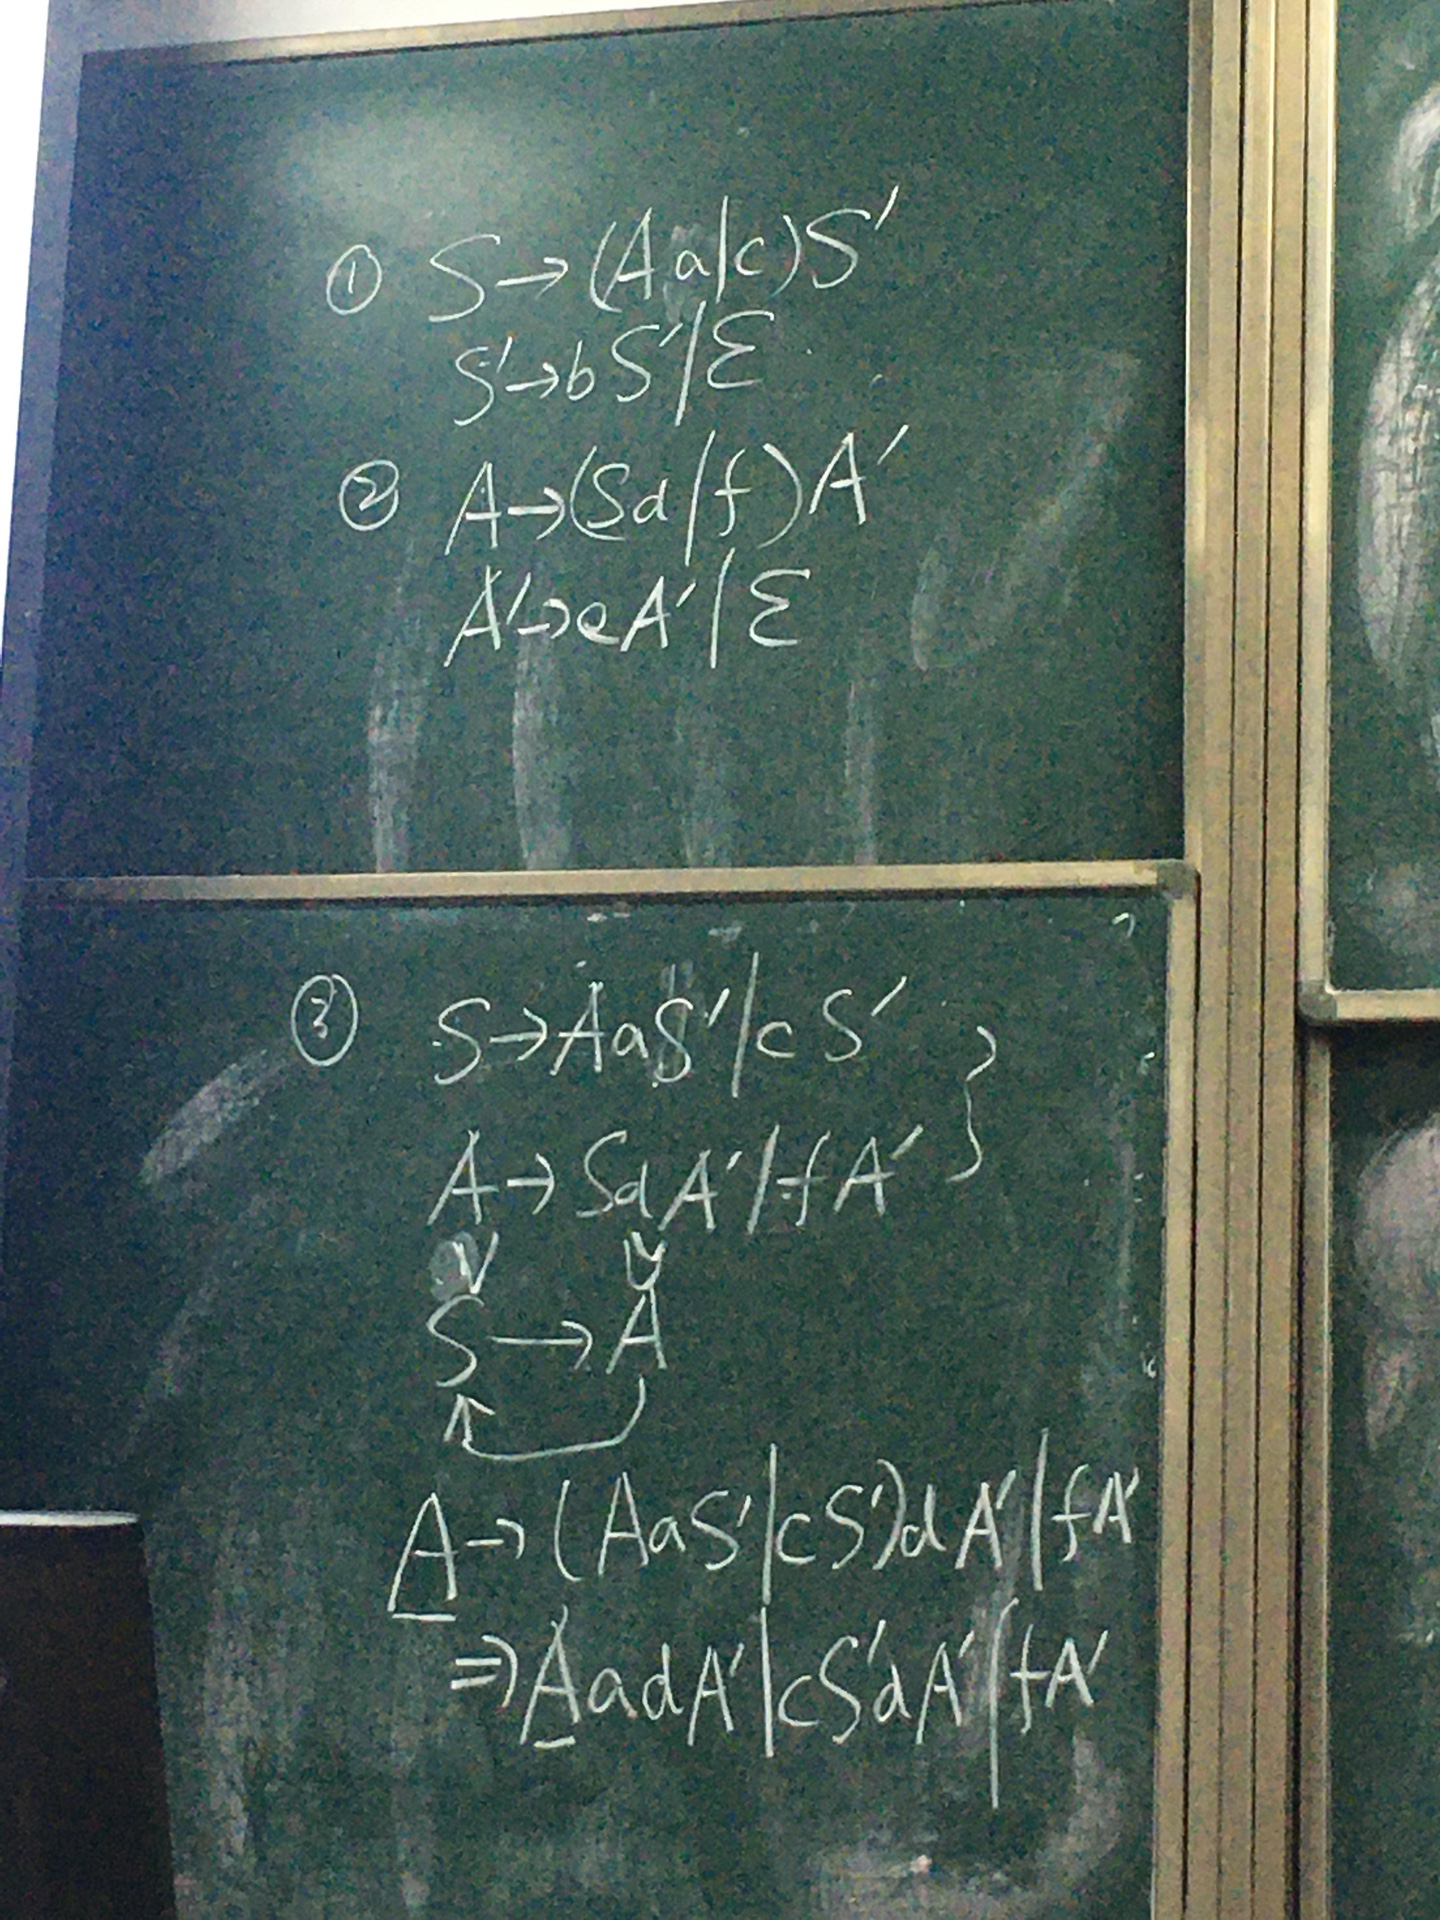 ① S→(Aa|c)S′
S′→bS′|Ɛ
② A→(Sd|f)A′
A′→eA′|Ɛ
③ S→AaS′|cS′ }
A→SdA′|fA′
S→A
A→(AaS′|cS′)dA′|fA′
⇒AadA′|cS′dA′|fA′